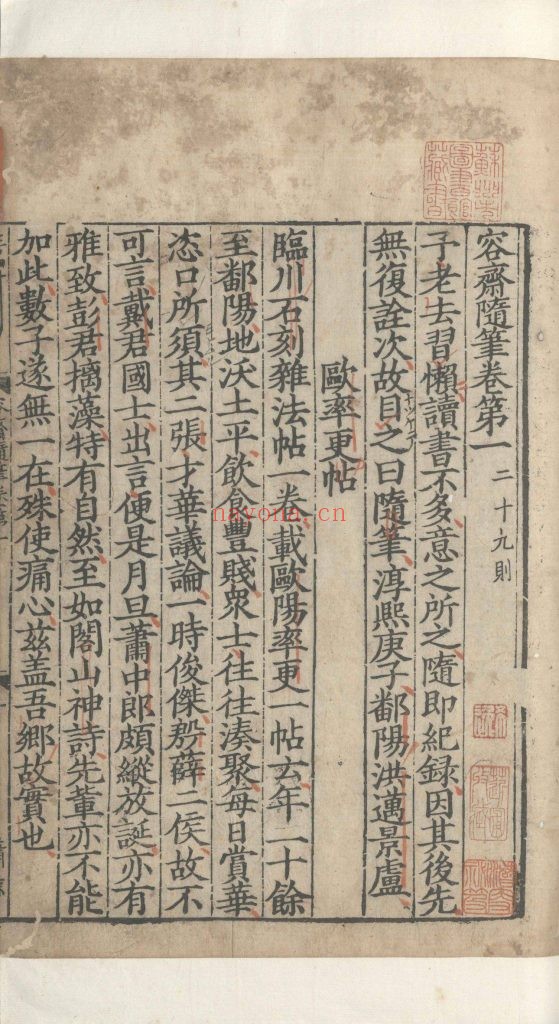 容齋隨筆卷第一 二十九則
予老去習懶讀書不多意之所之隨即紀録因其後先
無復詮次故目之曰隨筆淳熙庚子鄱陽洪邁景盧
歐率更帖
臨川石刻雜法帖一卷載歐陽率更一帖云年二十餘
至鄱陽地沃土平飲食豐賤衆士往往湊聚每日賞華
恣口所須其二張才華議論一時俊傑殷薛二侯故不
可言戴君國士出言便是月旦蕭中郎頗縱放誕亦有
雅致彭君摛藻特有自然至如閣山神詩先輩亦不能
如此數子遂無一在殊使痛心兹盖吾鄉故實也
nayona.cn